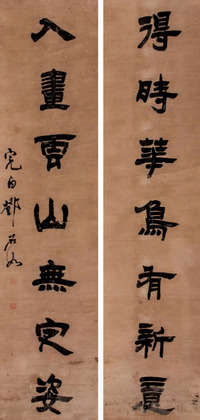 得時華鳥有新意
入畫雲山無定姿
完白鄧石如